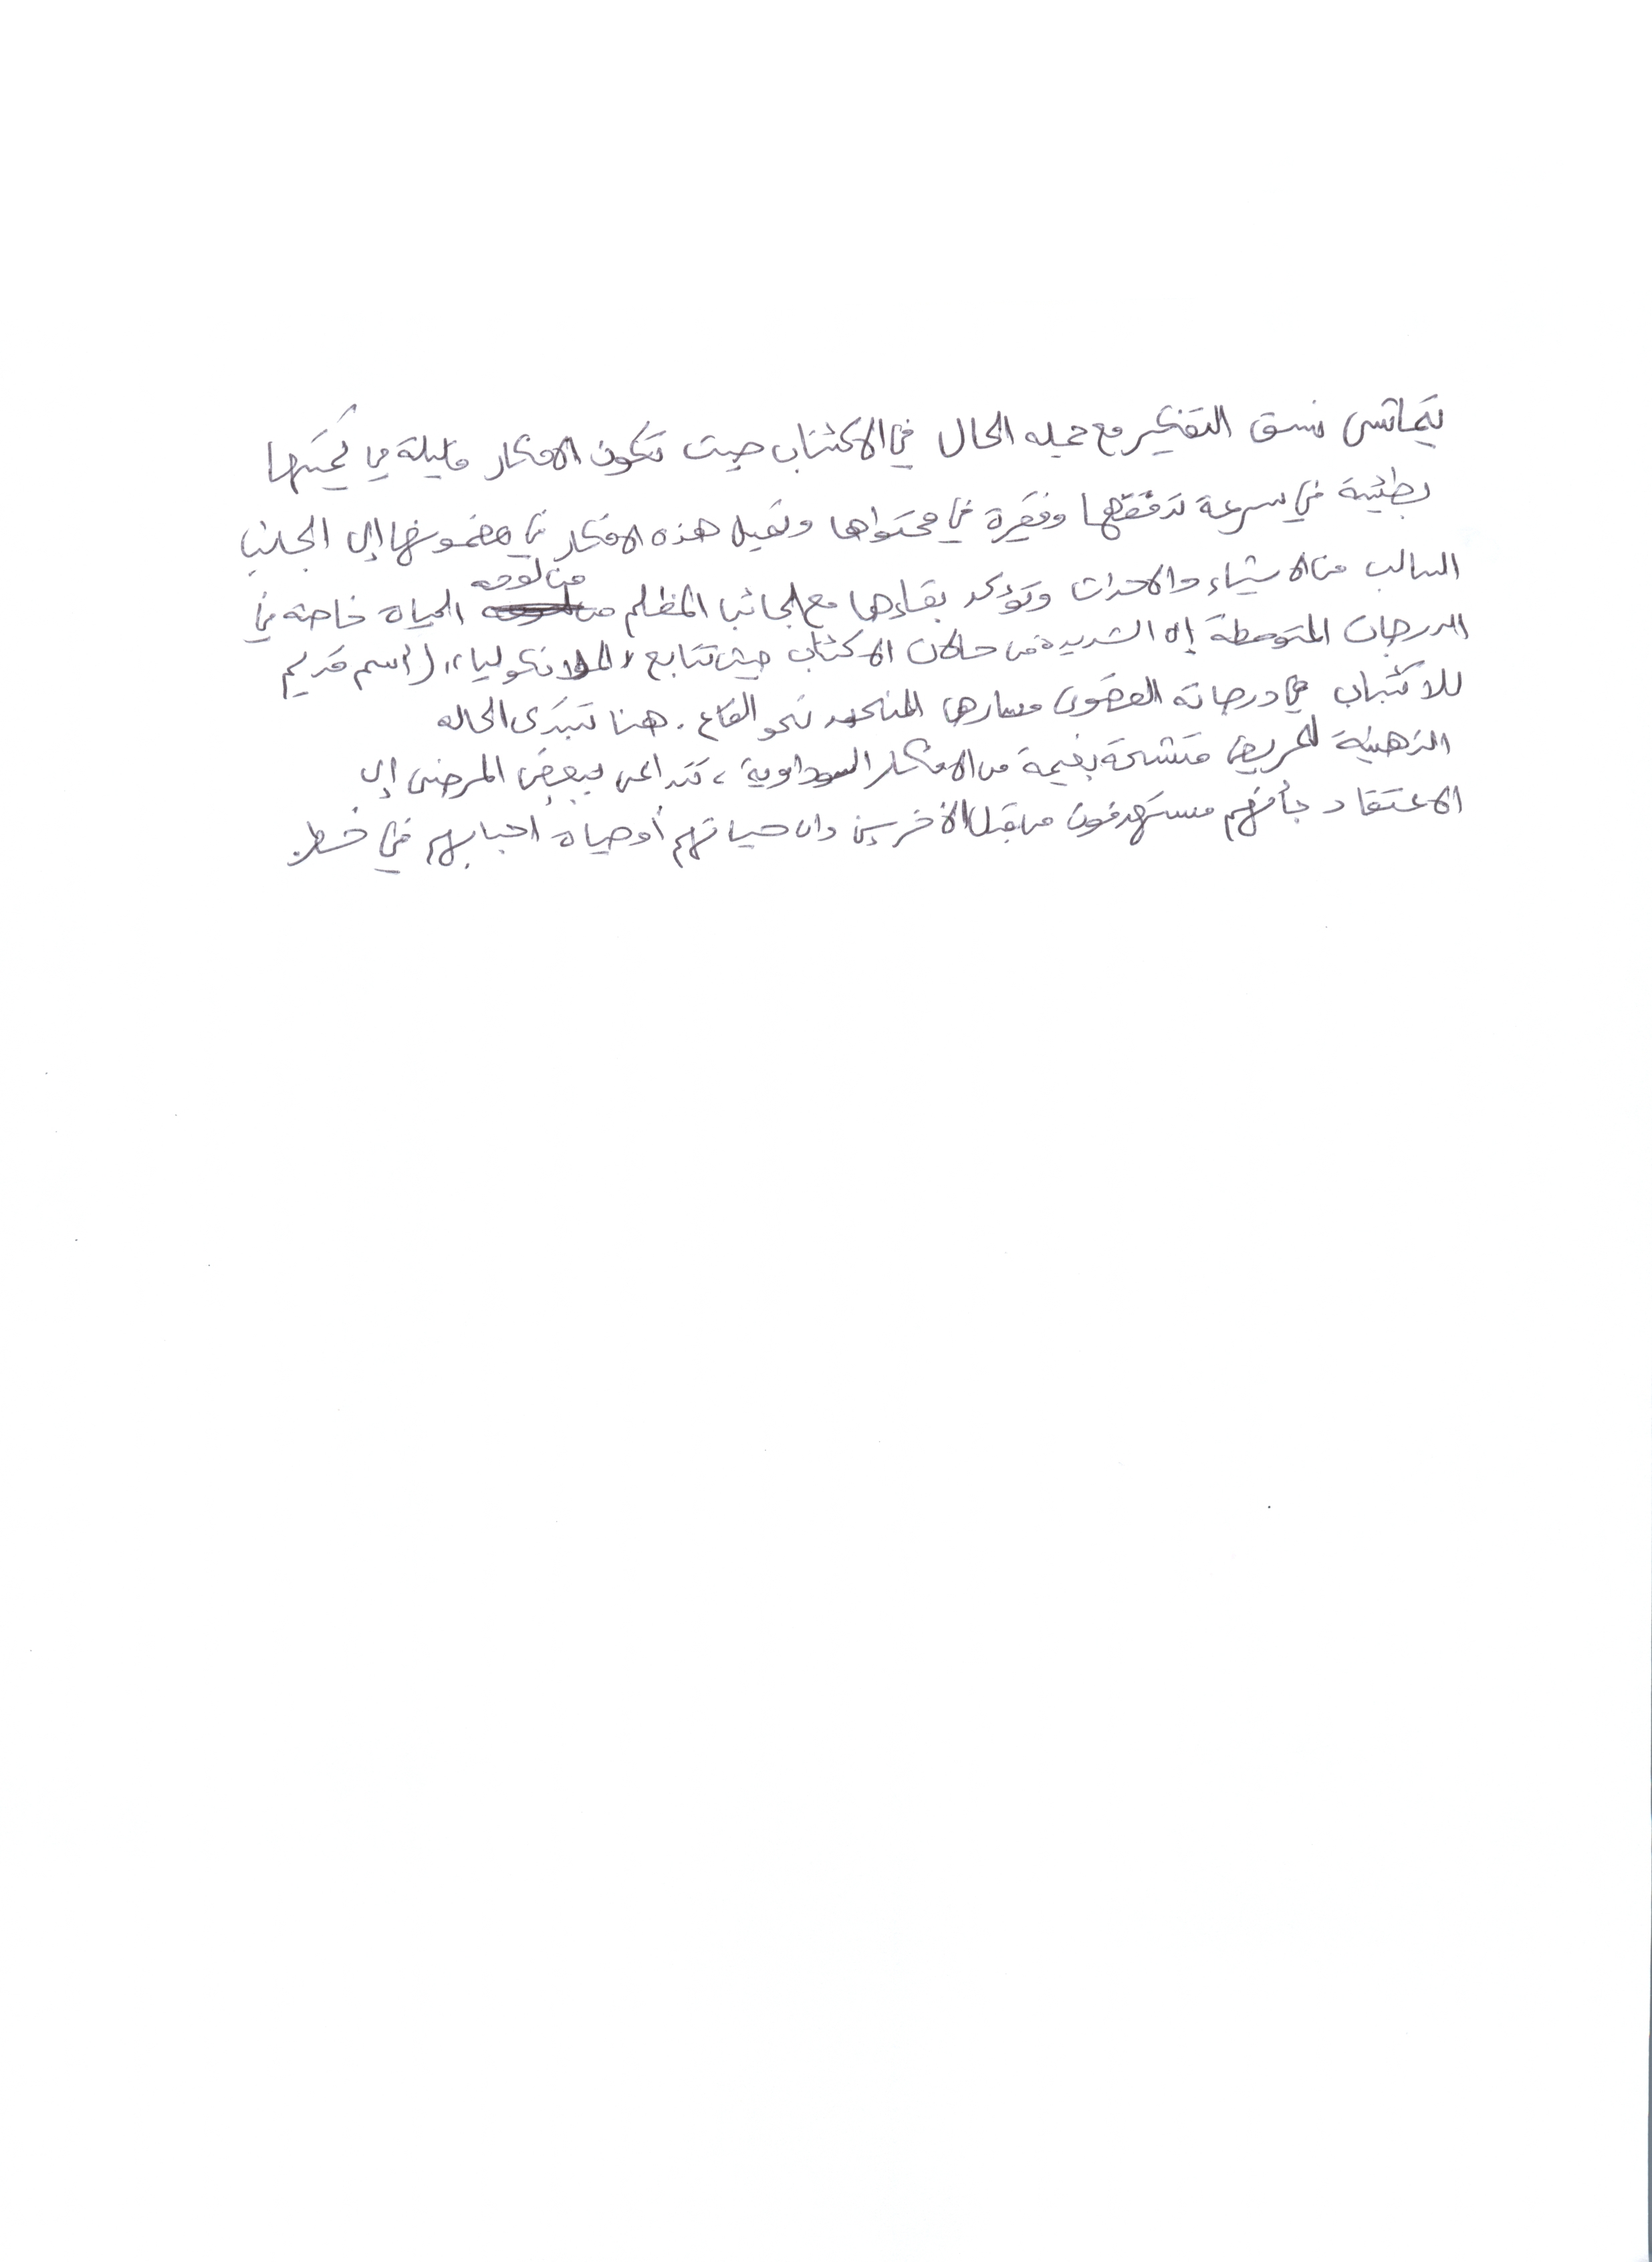 يتماشى نسق التفكير مع جمله الحال في الاكتئاب حيث تكون الافكار قليلة في كميتها
بطيئة في سرعة تدفقها وفقيرة في محتواها وتميل هذه الافكار في مضمونها إلى الجانب
السالب من الاشياء والاحداث وتؤكد بقاءها مع الجانب المظلم من لوحه الحياة خاصة في
الدرجات المتوسطة إلى الشديدة من حالات الاكتئاب حيث تتابع "الملانكوليا" (اسم قديم
للاكتئاب في درجاته القصوى مسارها المنحدر نحو القاع. هنا تتبدى الحاله
الذهنية للمريض متشحة بغيمة من الافكار السوداوية، تتداعى ببعض المرضى إلى
الاعتقاد بأنهم مستهدفون من قبل الآخرين وان حياتهم أو حياة احبابهم في خطر.